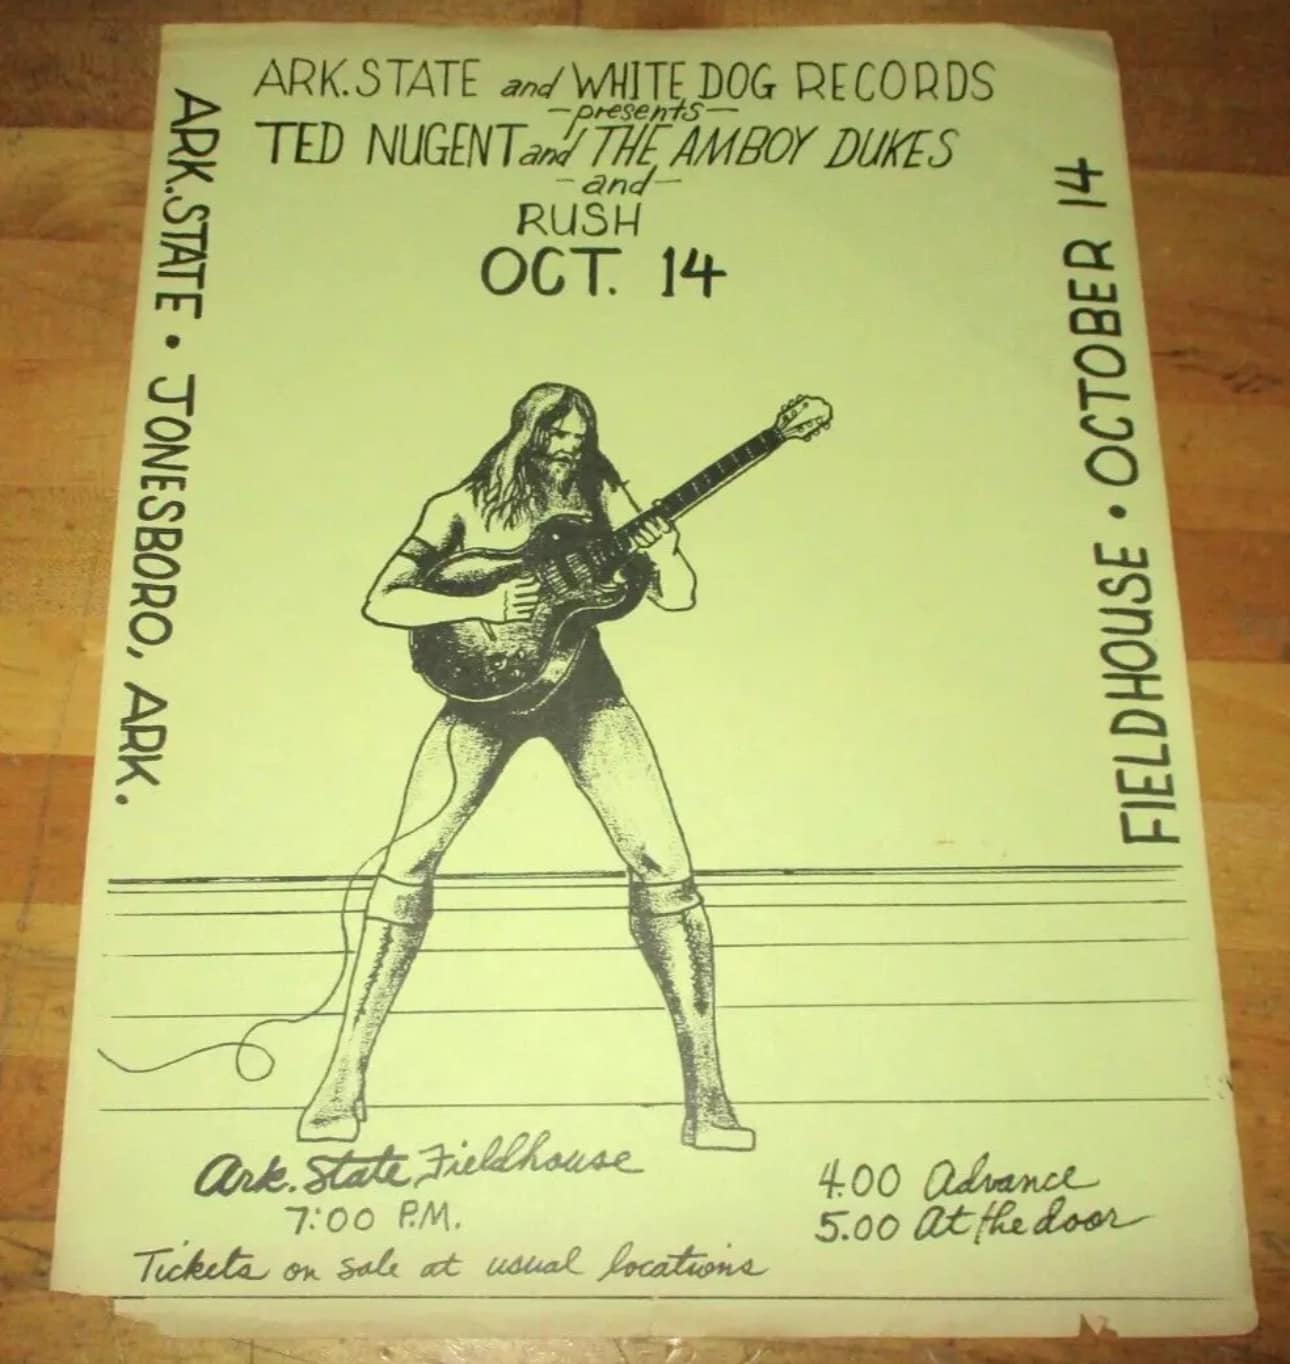 ARK.STATE and WHITE DOG RECORDS
-presents-
TED NUGENT and THE AMBOY DUKES
-and-
RUSH
OCT. 14
ARK.STATE • JONESBORO, ARK.
FIELDHOUSE • OCTOBER 14
Ark. State Fieldhouse
7:00 P.M.
Tickets on sale at usual locations
4.00 Advance
5.00 At the door